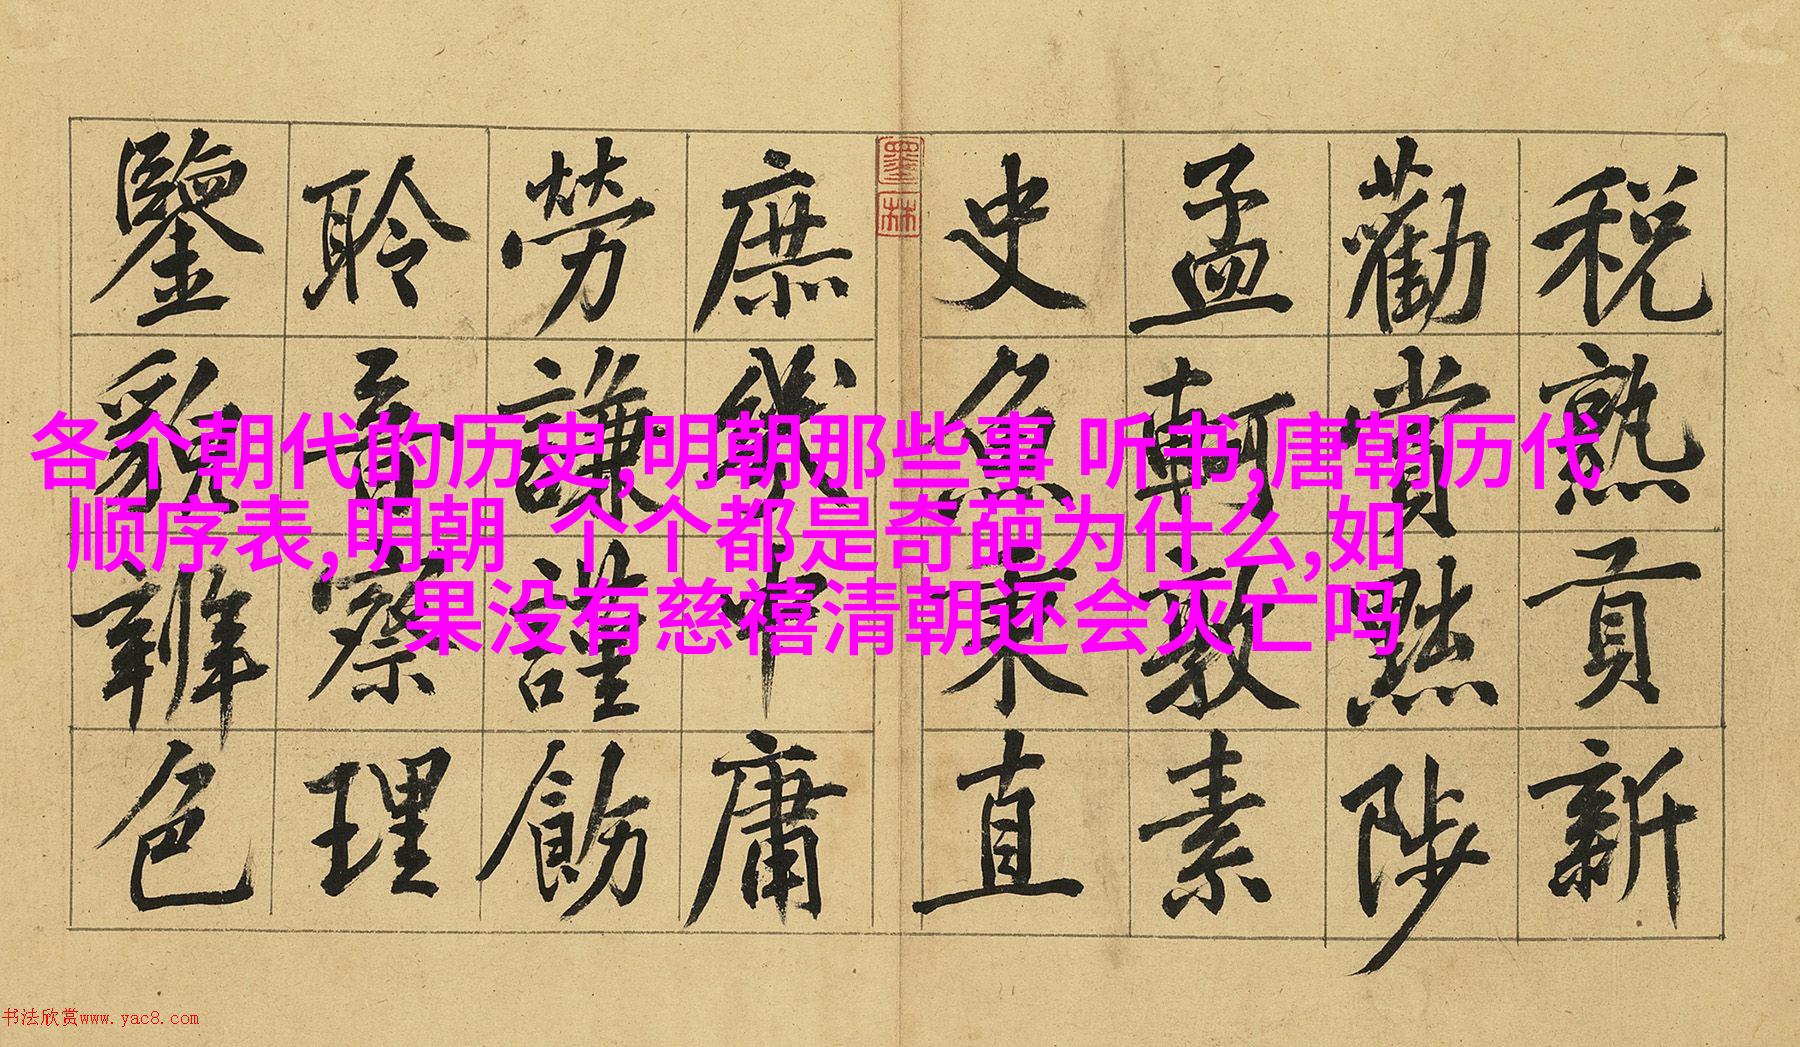 各个朝代的历史,明朝那些事 听书,唐朝历代
顺序表,明朝 个个都是奇葩为什么,如
果没有慈禧清朝还会灭亡吗
税熟貢新
勸賞黜陟
孟軻敦素
史魚秉直
墨林
庶幾中庸
勞謙謹飭
聆音察理
鑒貌辨色
书法欣赏www.yac8.com